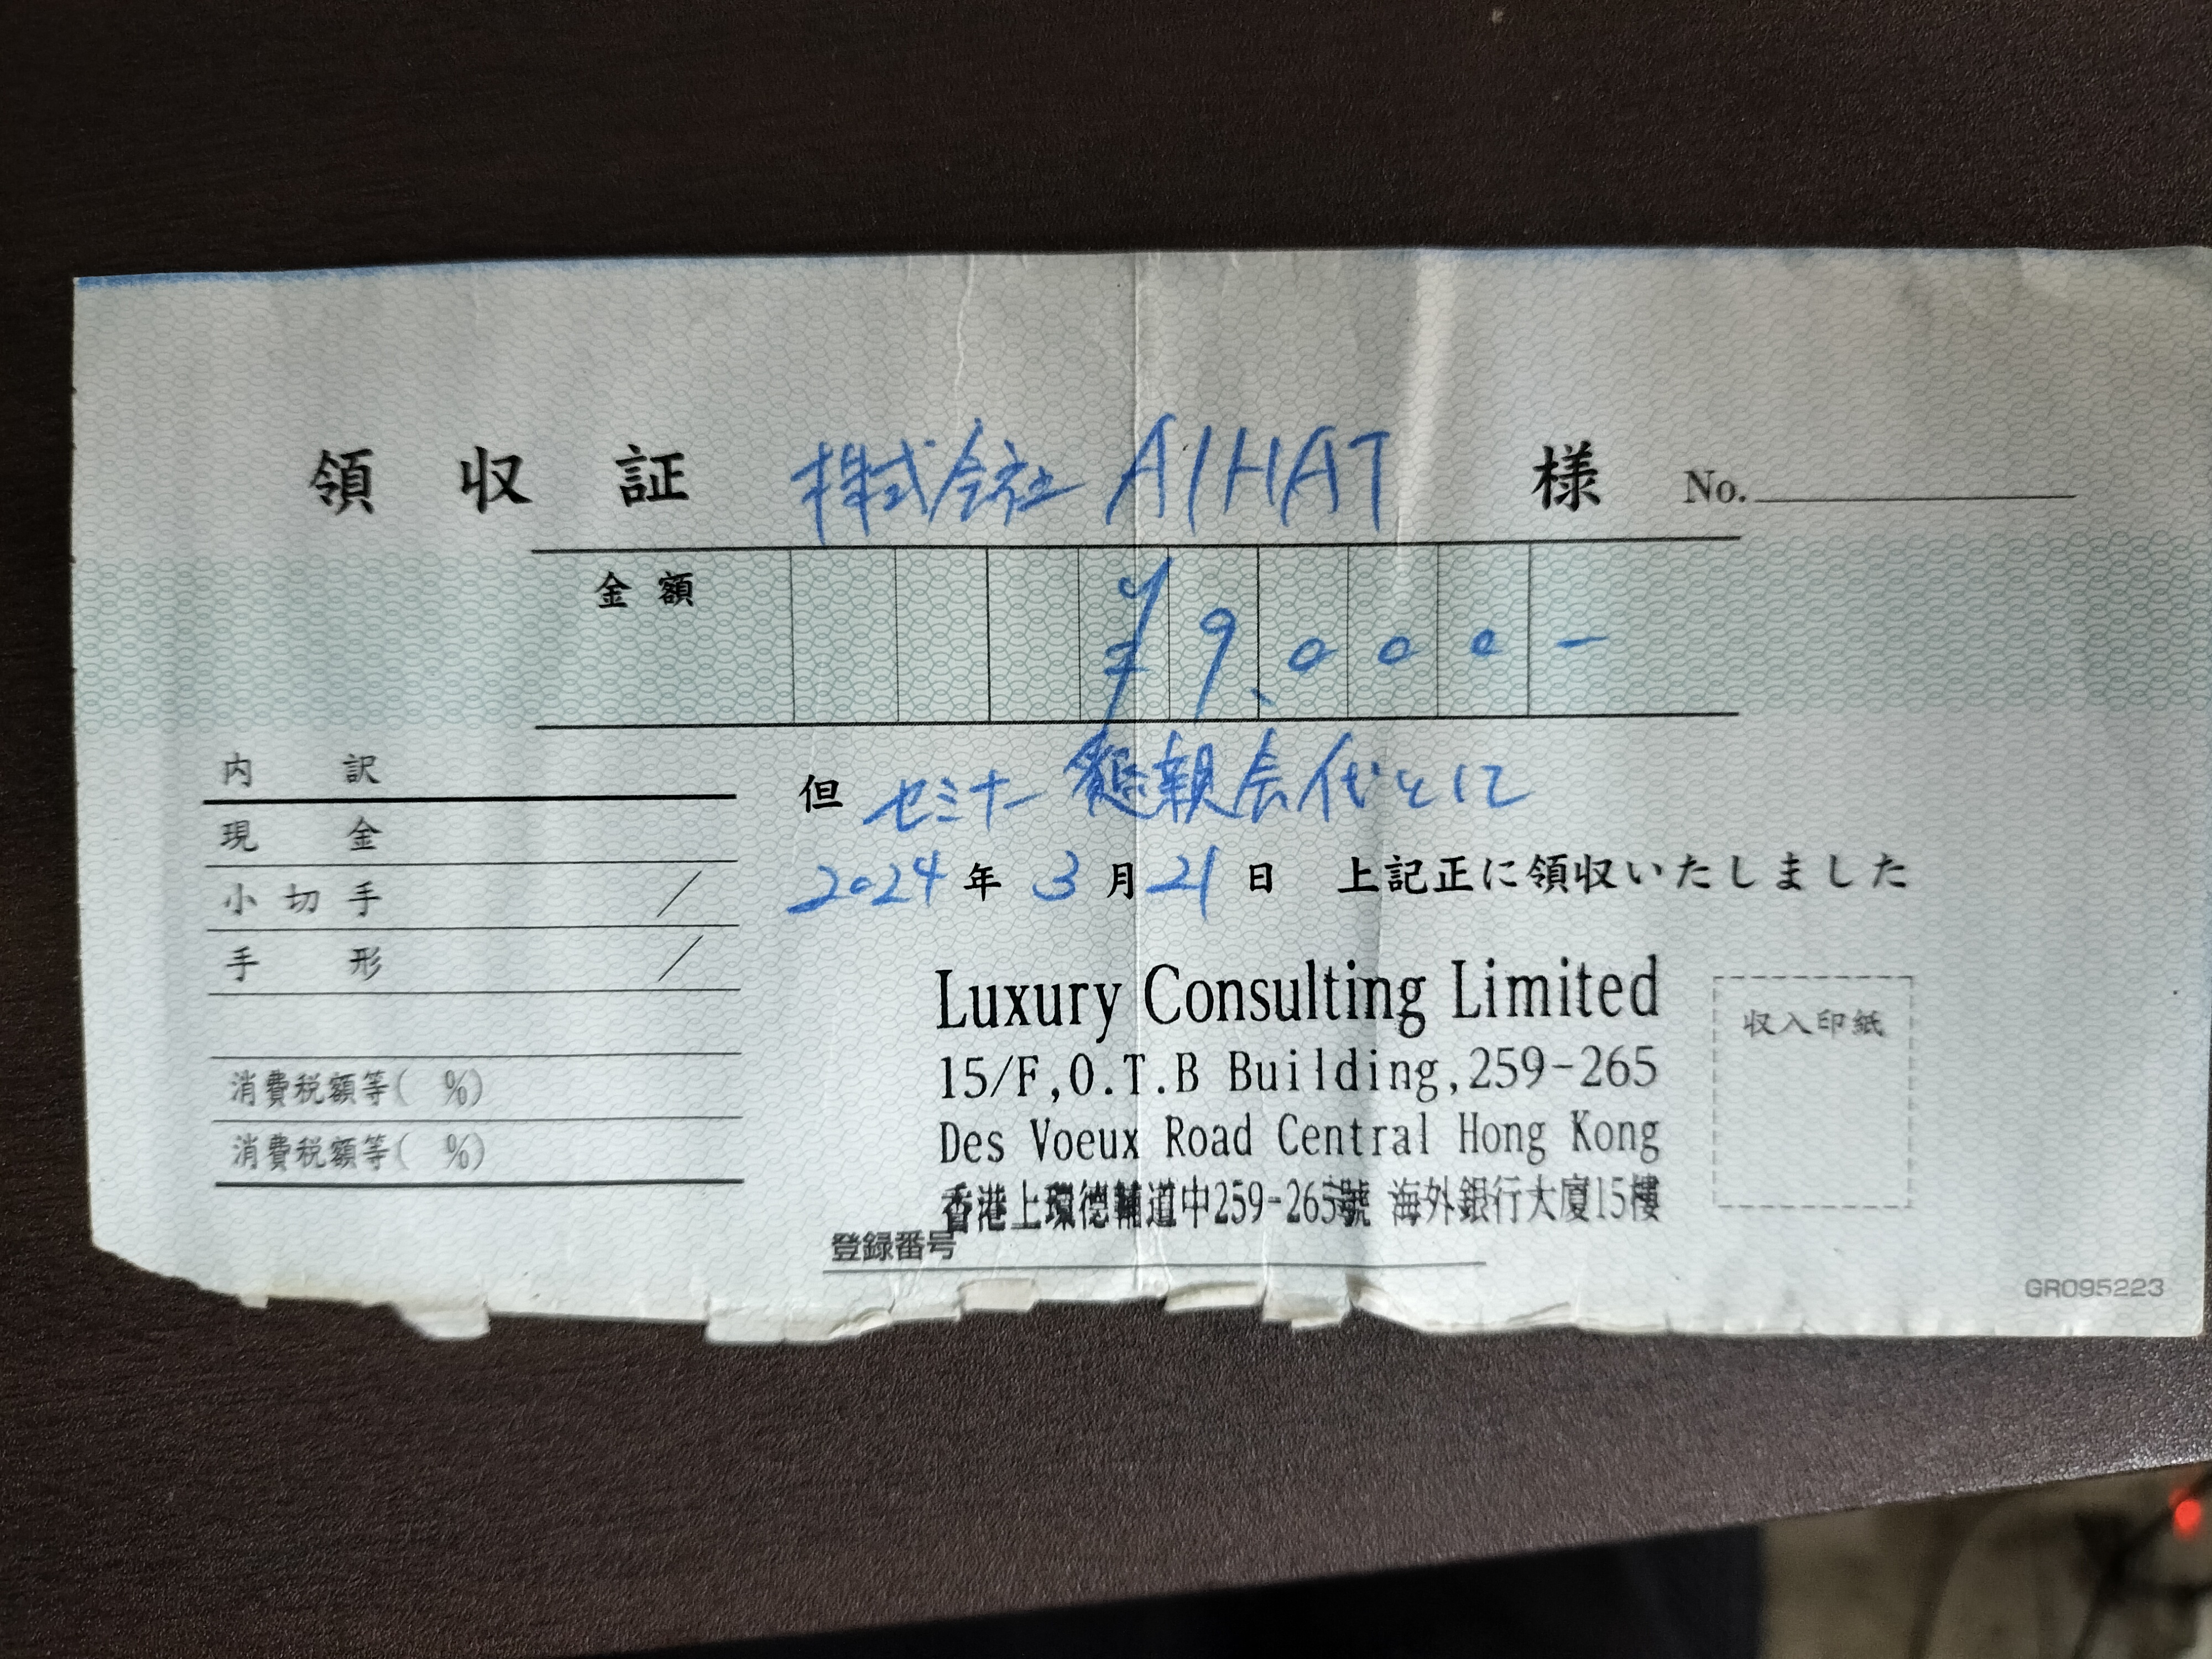 領収証 株式会社 AIHAT 様 No.
金額 ¥9,000-
内訳
現金
小切手 /
手形 /
消費税額等( %)
消費税額等( %)
但 セミナー 懇親会代として
2024年 3月21日 上記正に領収いたしました
Luxury Consulting Limited
15/F,O.T.B Building,259-265
Des Voeux Road Central Hong Kong
香港上環德輔道中259-265號 海外銀行大廈15樓
登録番号
収入印紙
GR095223